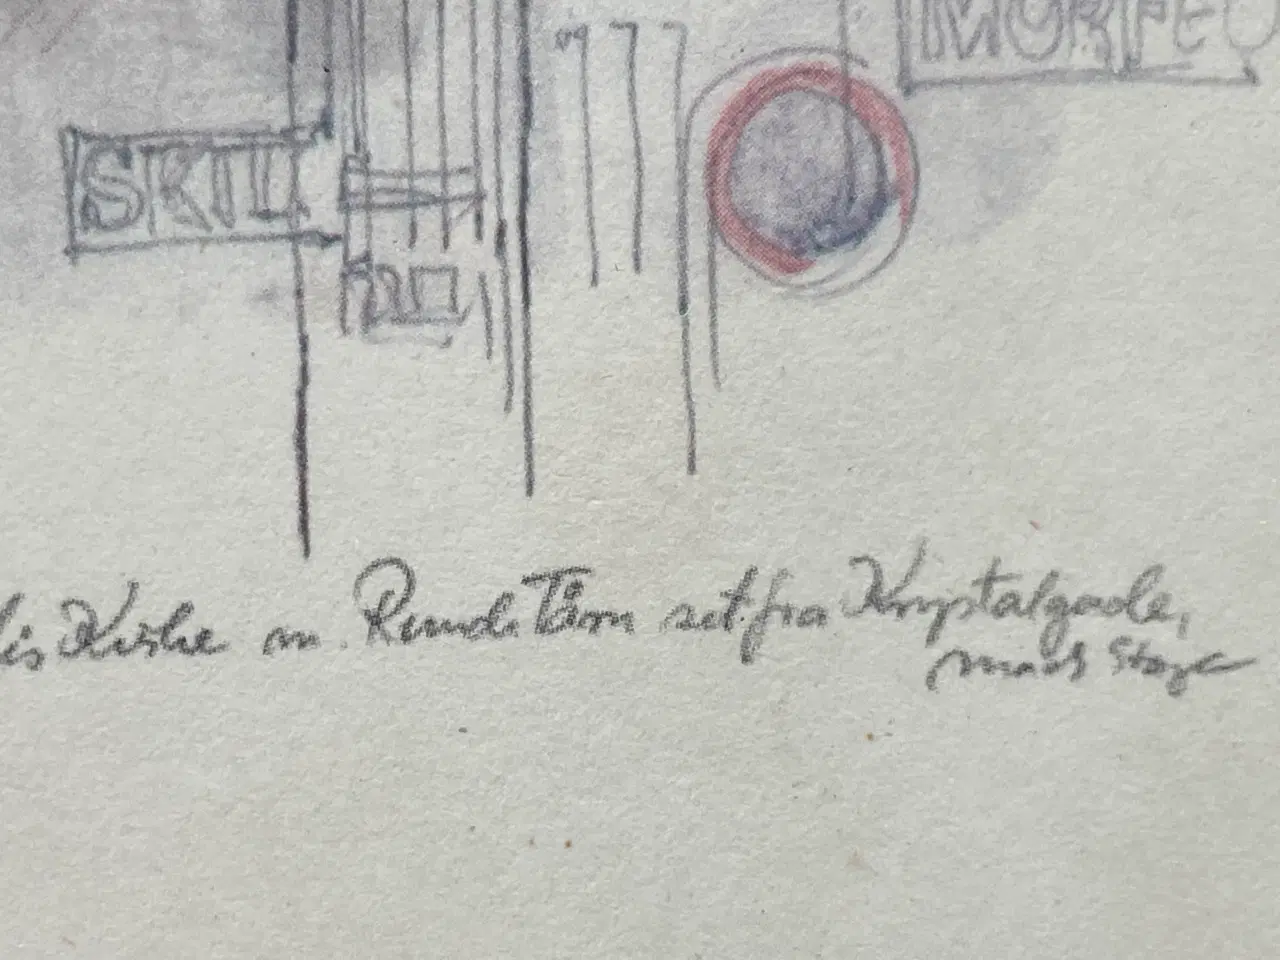 MORFEU
SKIL
is Kirke m. Runde Tårn set fra Krystalgade,
mads Stage